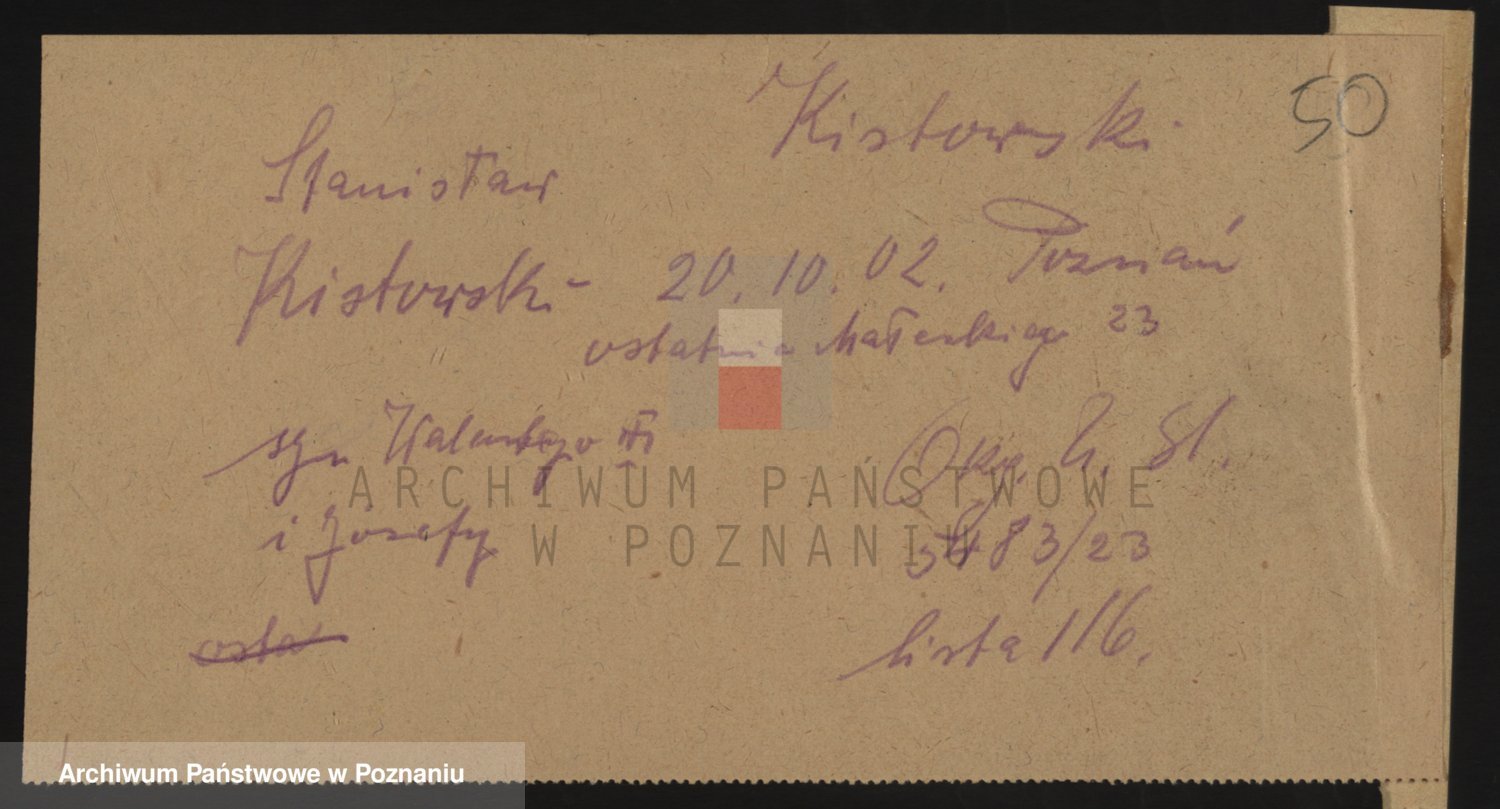 Kistowski
50
Stanisław
Kistowski - 20. 10. 02. Poznań
ostatnio Małeckiego 23
syn Walentego
i Józefy
Okg. U. St.
5483/23
lista 1/6.
osta
ARCHIWUM PAŃSTWOWE
W POZNANIU
Archiwum Państwowe w Poznaniu